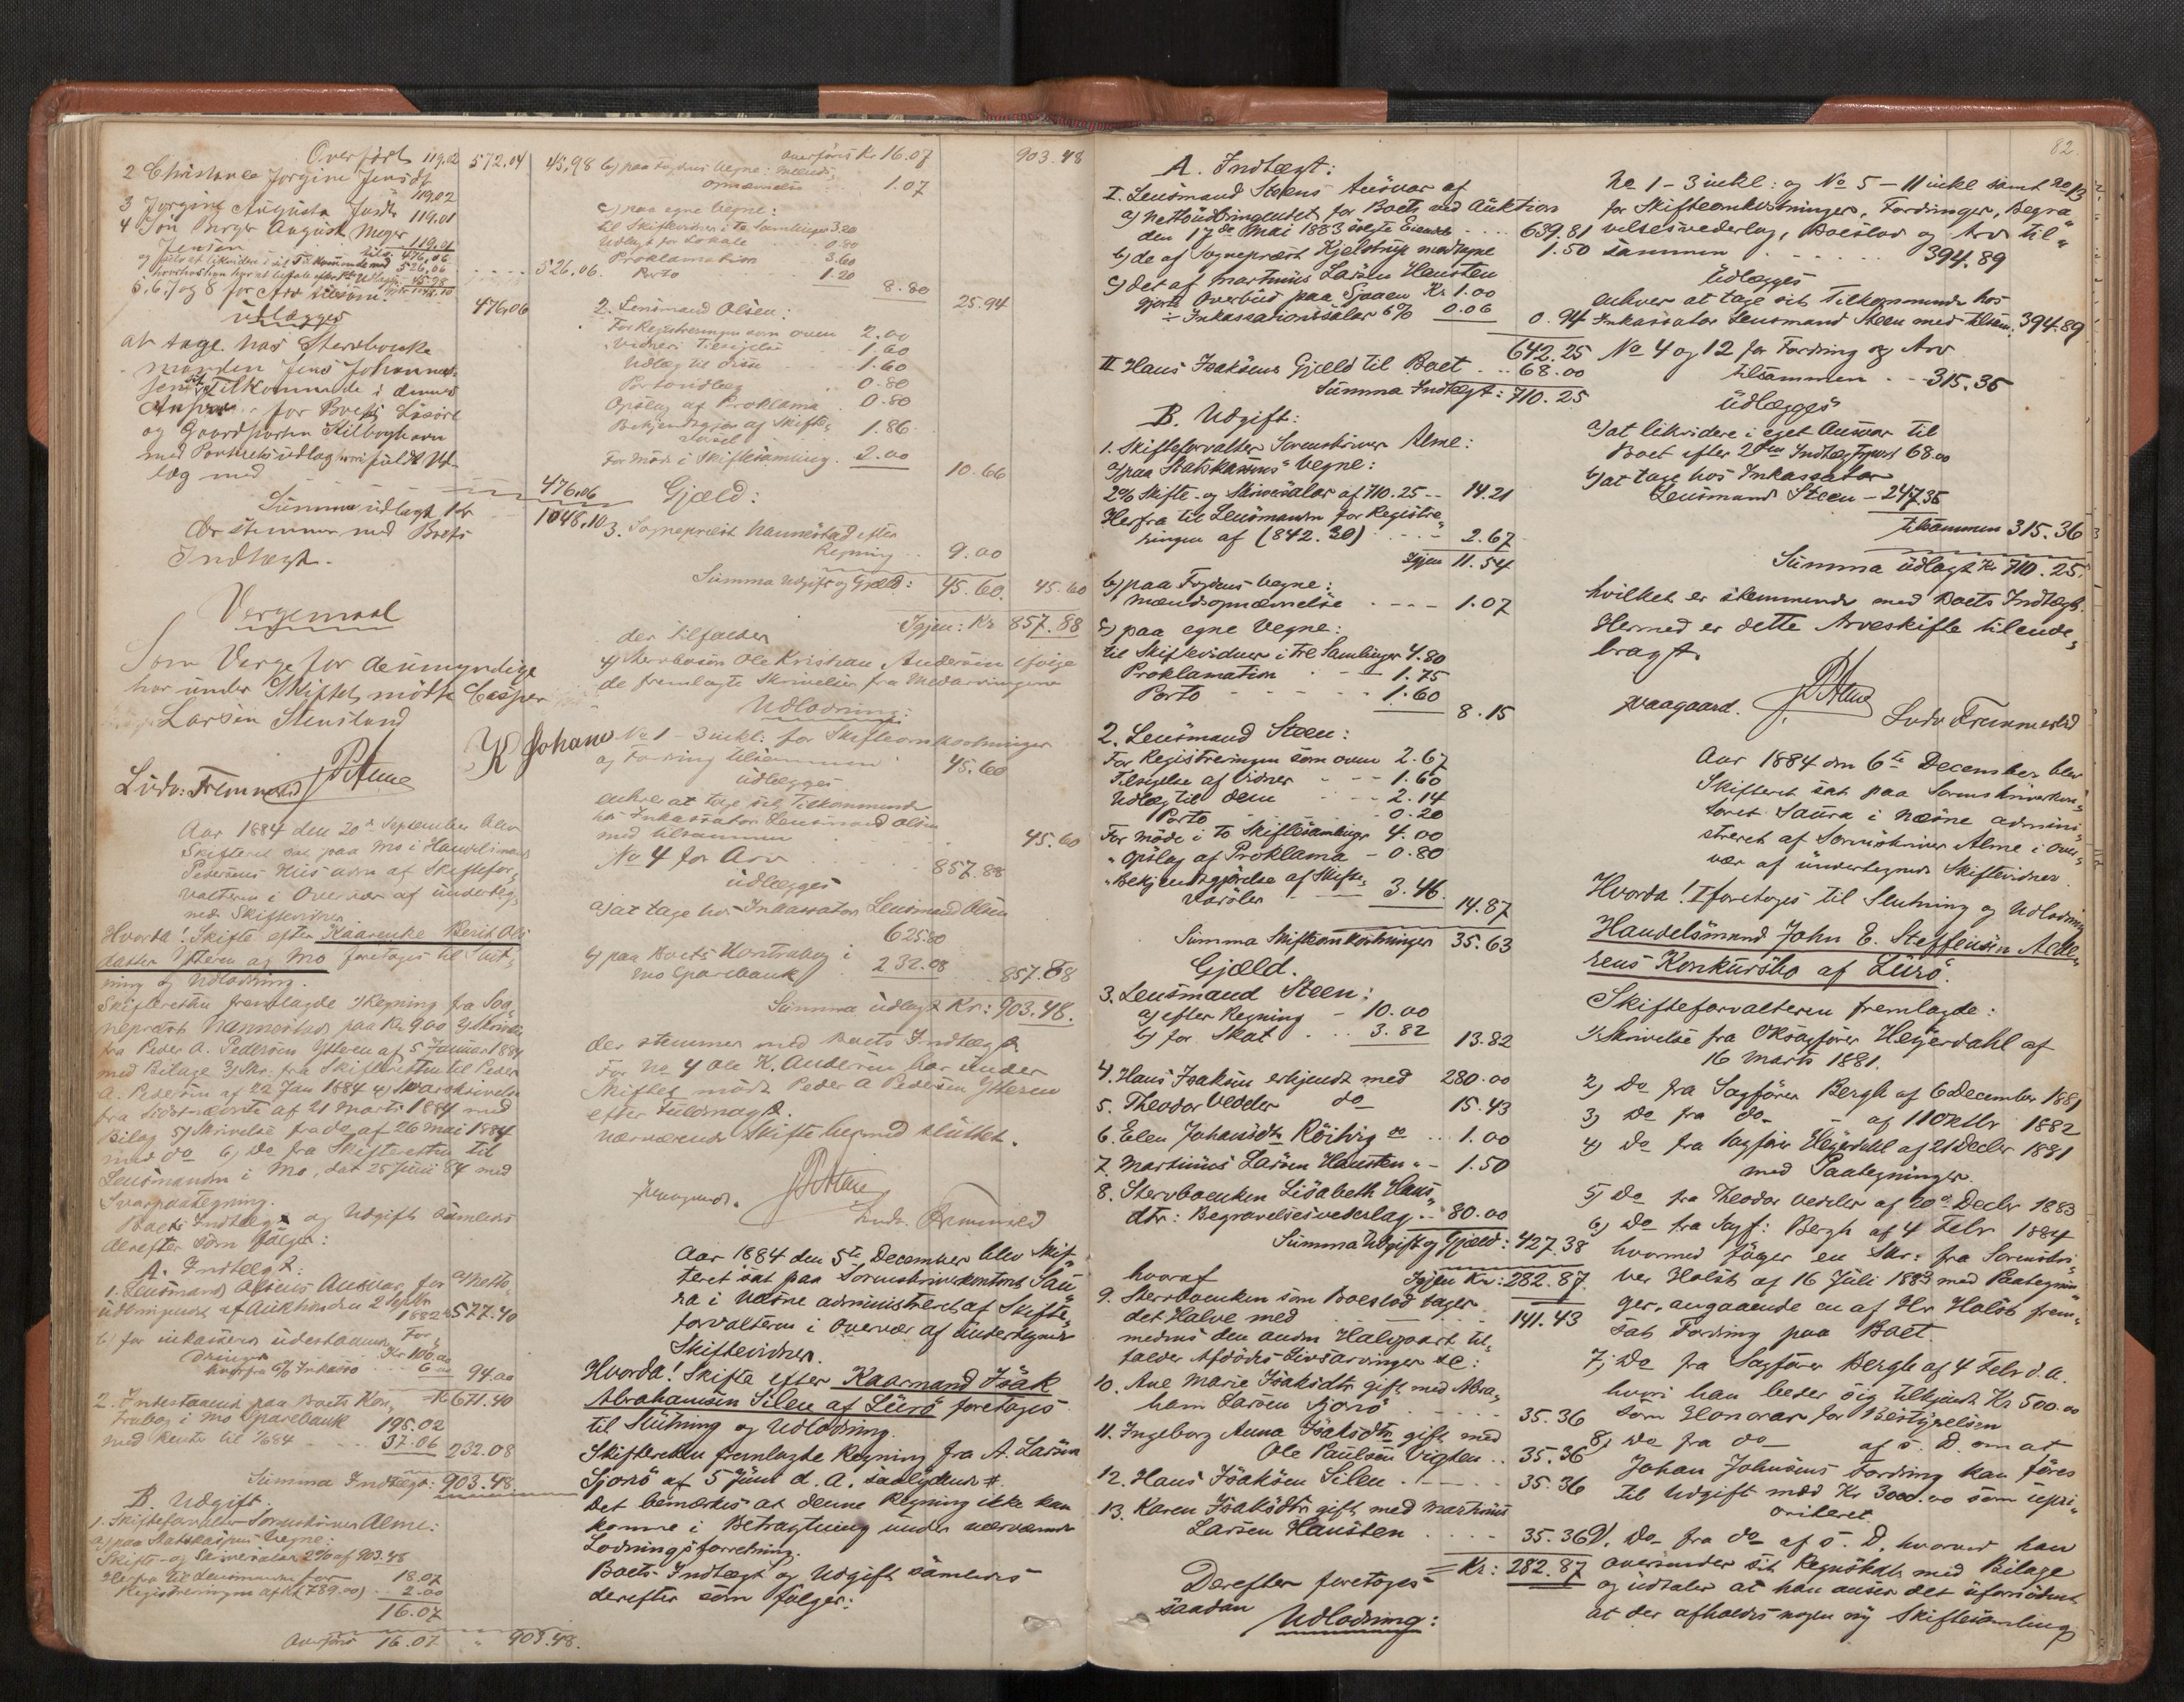 Overført 119.02 572.04
2 Christence Jorgine Jensdt
119.02
3 Jorgine Augusta Jensdtr 119.01
4 Jon Birger August Meyer
Jensen 119.01
476.06
526.06
5. 6. 7 og 8 for Arv tilsam: 476.06
udlægges
at tage hos Sterboenke
manden Jens Johannes
Jensen Tilkommende i dennes
Ansvar for Boets Løsøre
og Gaardparten Stilboghavn
med Panterets udlæg
læg med 476.06
Summa udlagt Kr 1048.10
der stemmer med Boets
Indtægt.
Vergemaal
Som Verge for de umyndige
har under Skiftet mødt Casper
Larsen Stensland
Ludv: Fremmerlid
K Johans
Aar 1884 den 20de September blev
Skifteret sat paa Mo i Handelsmand
Pedersens Hus adm af Skiftefor-
valteren i Overvær af underteg-
nede Skiftevidner
Hvorda! Skifte efter Kaarenke Berit Ols
datter Ytteren af Mo foretoges til Slut-
ning og Udlodning.
Skifteretten fremlagde 1) Regning fra Sog-
nepræst Hannestad paa Kr 9.00 2) Skrivelse
fra Peder A. Pedersen Ytteren af 5 Januar 1884
med Bilage 3) Skr: fra Skifteretten til Peder
A. Pedersen af 22 Jan 1884 4) Svarskrivelse
fra sidstnævnte af 21 Marts 1884 med
Bilag 5) Skrivelse fra do af 26 Mai 1884
med do 6) Do fra Skifteretten til
Lensmanden i Mo, dat 25 Juni 84 med
Svarpaategning.
Boets Indtægt og Udgift saaledes
derefter som følger:
A. Indtægt:
1. Lensmand Olsens Ansvar for a) Netto-
udbringendet af Auktionen 2 Septbr
1882 577.40
b) for inkasseret udestaaende For-
dringer Kr 100.00
herfra 6% Inkasso 6.00 94.00
Kr 671.40
2. Indestaaende paa Boets Kon-
trabog i Mo Sparebank 195.02
med Renter til 84 37.06 232.08
Summa Indtægt: 903.48
B. Udgift.
1. Skifteforvalter Sorenskriver Alme:
a) paa Statskassens Vegne:
Skifte- og Skrivesalær 2% af 903.48
18.07
Herfra til Lensmanden for
Registreringen af (Kr 789.00) 2.00
16.07
Overføres 16.07 " 903.48.
Overføres Kr 16.07 903.48
43.98 b) paa Fogdens Vegne: Mænds-
opnævnelse 1.07
c) paa egne Vegne:
til Skiftevidner i to Samlinger 3.20
Udlagt for Lokale 0.80
Proklamation 3.60
Porto 1.20
8.80 25.94
2. Lensmand Olsen:
For Registreringen som oven 2.00
Vidners Tilsigelse 1.60
Udlæg til disse 1.60
Portoudlæg 0.80
Opslag af Proklama 0.80
Bekjendtgjør af Skifte-
1.86
For Møde i Skiftesamling 2.00
10.66
Gjæld:
3. Sognepræst Hannestad efter
Regning 9.00
Summa Udgift og Gjæld: 45.60. 45.60
Igjen: Kr 857.88
der tilfalder
4) Sterboeren Ole Kristian Andersen ifølge
de fremlagte Skrivelser fra Medarvingerne
Udlodning:
No 1 - 3 inkl: for Skifteomkostninger
og Fordring tilsammen 45.60
udlægges
enhver at tage sit Tilkommende
hos Inkassator Lensmand Olsen
med tilsammen 45.60
No 4 for Arv 857.88
udlægges
a) at tage hos Inkassator Lensmand Olsen
625.80
b) paa Boets Kontrabog i
Mo Sparebank 232.08 857.88
Summa udlagt Kr: 903.48.
der stemmer med Boets Indtægt.
For No 4 Ole K. Andersen har under
Skiftet mødt Peder A Pedersen Ytteren
efter Fuldmagt.
Nærværende Skifte hermed sluttet.
Ludv. Fremmerlid
Aar 1884 den 5te December blev Skif-
teret sat paa Sorenskriverkontoret Sau-
ra i Næsne administreret af Skifte-
forvalteren i Overvær af undertegnede
Skiftevidner.
Hvorda! Skifte efter Kaarmand Isak
Abrahamsen Silen af Lurø foretoges
til Slutning og Udlodning.
Skifteretten fremlagte Regning fra A. Larsen
Sjonø af 5 Juni d. A. saalydende #.
Det bemærkes at denne Regning ikke kan
komme i Betragtning under nærværende
Lodningsforretning.
Boets Indtægt og Udgift saaledes
derefter som følger:
82.
A. Indtægt:
I. Lensmand Steens Ansvar af
a) Nettoudbringendet for Boets ved Auktion
den 17de Mai 1883 solgte Eiendele 639.81
b) de af Sognepræst Kjelstrup modtagne 1.50
c) det af Martinus Larsen Hansten
gjorte Overbud paa Sjaaen Kr 1.00
÷ Inkassationssalær 6% 0.06 0.94
642.25
II Hans Isaksens Gjæld til Boet 68.00
Summa Indtægt: 710.25
B. Udgift:
1. Skifteforvalter Sorenskriver Alme:
a) paa Statskassens Vegne:
2% Skifte- og Skrivesalær af 710.25 14.21
Herfra til Lensmanden for Registre-
ringen af (842.30) 2.67
Igjen 11.54
b) paa Fogdens Vegne:
Mændsopnævnelse 1.07
c) paa egne Vegne:
til Skiftevidner i tre Samlinger 4.80
Proklamation 1.75
Porto 1.60
8.15
2. Lensmand Steen:
For Registreringen som oven 2.67
Tilsigelse af Vidner 1.60
Udlæg til dem 2.14
Porto 0.20
For Møde i to Skiftesamlinger 4.00
" Opslag af Proklama - 0.80
" Bekjendtgjørelse af Skifte-
varsler 3.46
14.87
Summa Skifteomkostninger 35.63
Gjæld.
3. Lensmand Steen:
a) efter Regning - 10.00
b) for Skat 3.82 13.82
4. Hans Isaksen erkjendt med 280.00
5. Theodor Vedeler do 15.43
6. Elen Johansdtr Röitvig do 1.00
7. Martinus Larsen Hansten " - 1.50
8. Sterboenken Lisabeth Hans-
dtr: Begravelsesvederlag 80.00
Summa Udgift og Gjæld: 427.38
hvoraf Igjen Kr: 282.87.
9. Sterboenken som Boeslod tager
det Halve med 141.43
medens den anden Halvpart til-
falder Afdødes Livsarvinger sc:
10. Ane Marie Isaksdtr gift med Abra-
ham Larsen Sjonø 35.36
11. Ingeborg Anna Isaksdtr gift med
Ole Paulsen Vigten 35.36
12. Hans Isaksen Silen 35.36
13. Karen Isaksdtr gift med Martinus
Larsen Hansten 35.36
Kr: 282.87
Derefter foretoges
saadan
Udlodning:
No 1 - 3 inkl: og No 5 - 11 inkl samt No 13
for Skifteomkostninger, Fordringer, Begra-
velsesvederlag, Boeslod og Arv til-
sammen 394.89
udlægges
enhver at tage sit Tilkommende hos
Inkassator Lensmand Steen med tilsam. 394.89
No 4 og 12 for Fordring og Arv
tilsammen 315.36
udlægges
a) at likvidere i eget Ansvar til
Boet efter 2den Indtægtspost 68.00
b) at tage hos Inkassator
Lensmand Steen - 247.36
tilsammen 315.36
Summa udlagt Kr 710.25.
hvilket er stemmende med Boets Indtægt.
Hermed er dette Arveskifte tilende-
bragt.
Ludv Fremmerlid
Aar 1884 den 6te December blev
Skifteret sat paa Sorenskriverkon-
toret Saura i Næsne admini-
streret af Sorenskriver Alme i Over-
vær af undertegnede Skiftevidner.
Hvorda! foretoges til Slutning og Udlodning
Handelsmand John E. Steffensen Alde-
rens Konkursbo af Lurø.
Skifteforvalteren fremlagde:
1) Skrivelse fra ORsagfører Heyerdahl af
16 Marts 1881.
2) Do fra Sagfører Bergh af 6 December 1881
3) Do fra do - af 11 Oktbr 1882
4) Do fra Sagfør Heyerdahl af 21 Decbr 1881
med Paategninger.
5) Do fra Theodor Vedeler af 20de Decbr 1883
6) Do fra Sagf: Bergh af 4 Febr 1884
hvormed følger en Skr: fra Sorenskri-
ver Holst af 16 Juli 1883 med Paategnin-
ger, angaaende en af Hr Holst frem-
sat Fordring paa Boet.
7) Do fra Sagfører Bergh af 4 Febr d. A.
hvori han beder sig tilkjendt Kr 500.00
som Honorar for Bestyrelsen
8) Do fra do af s. D. om at
Johan Johnsens Fordring kan føres
til Udgift med Kr 3000.00 som upri-
oriteret.
9). Do fra do af s. D. hvorved han
oversender sit Regnskab med Bilage
og udtaler at han anser det ufornødent
at der afholdes nogen ny Skiftesamling